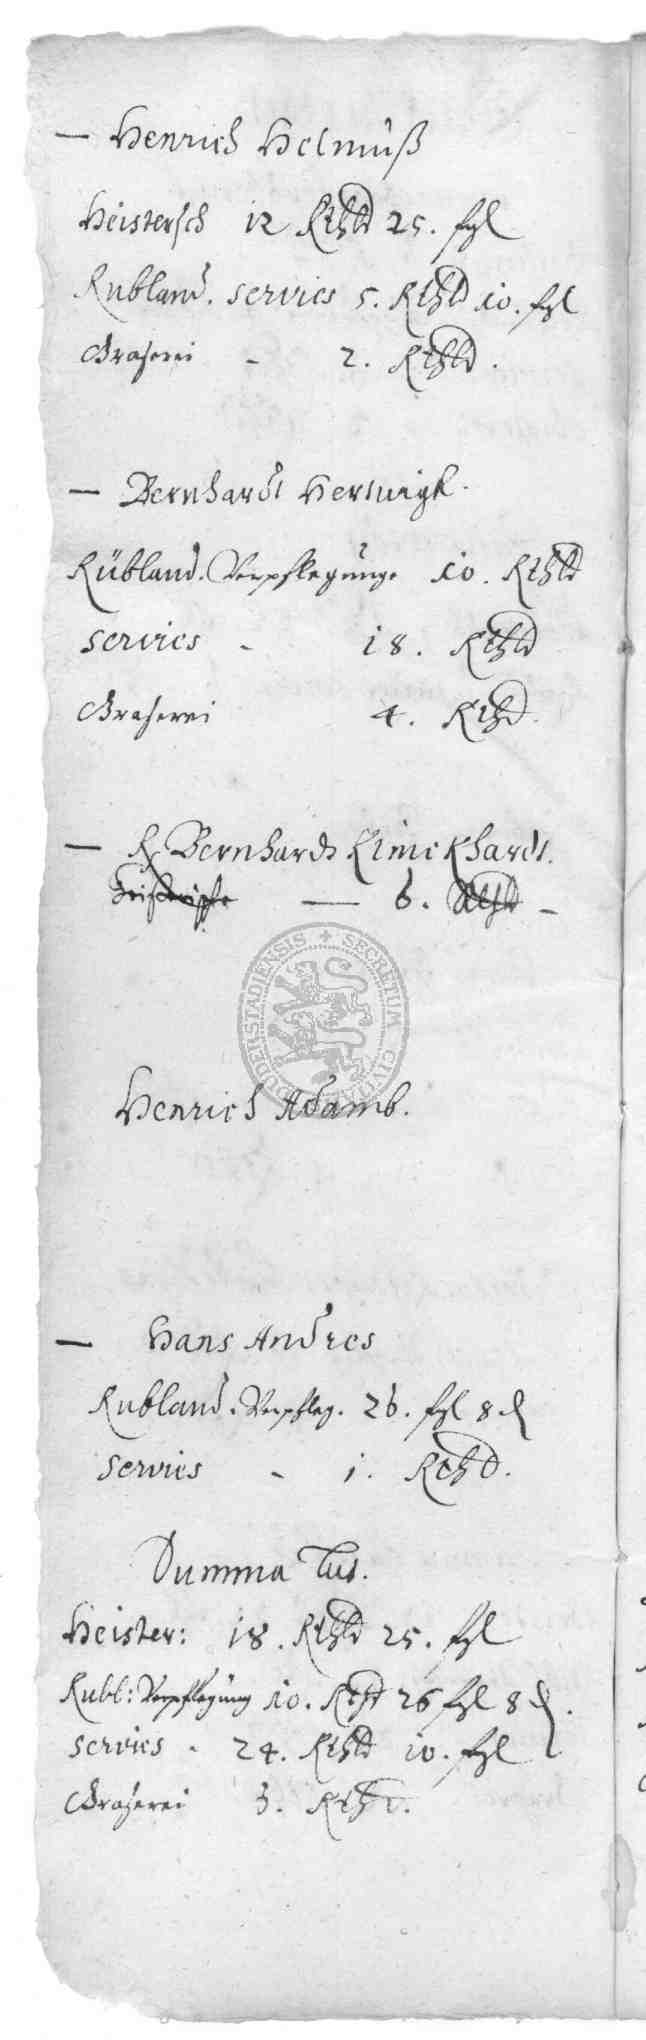 — Henrich Helmuß
Heistersch 12 Rthld 25. fgl
Rubland. servies 5. Rthld 10. fgl
Graserei - 2. Rthld.
— Bernhardt Herwigk.
Rübland. Verpflegunge 10. Rthld
servies - 18. Rthld
Graserei 4. Rthd.
— Bernhardt
— 6. Rthd —
SECRETUM CIVITA DUDERSTADIENSIS
Henrich Adamb.
— Hans Andres
Rubland. Verpfleg. 26. fgl 8 ₰
servies - 1. Rthd.
Summa
Heister: 18. Rthld 25. fgl
Rubl: Verpflegung 10. Rthd 26 fgl 8 ₰.
servies - 24. Rthld 10. fgl
Graserei 6. Rthd.